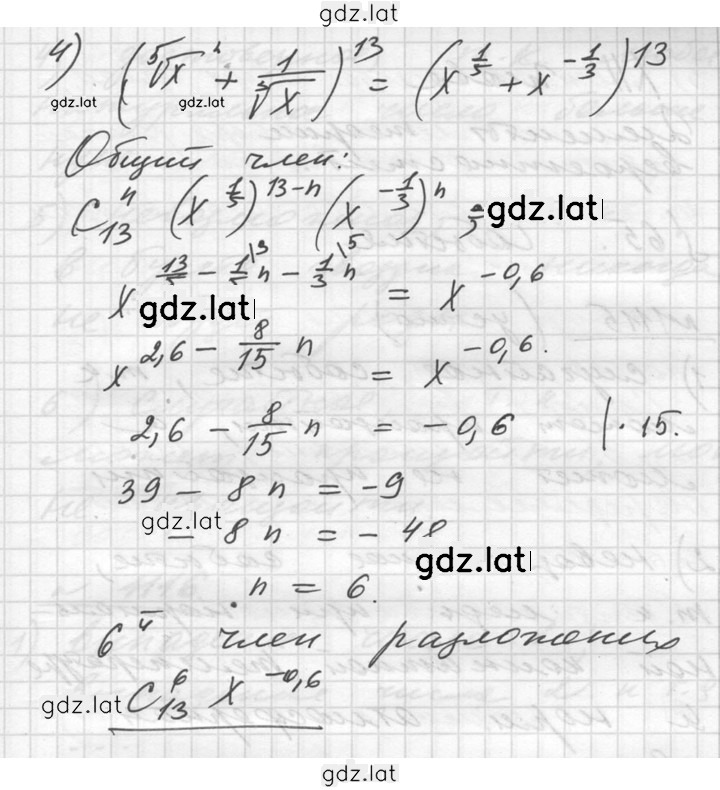 gdz.lat
4) (⁵√x + 1/∛x)¹³ = (x^(1/5) + x^(-1/3))¹³
gdz.lat gdz.lat
Общий член:
C₁₃ⁿ (x^(1/5))^(13-n) (x^(-1/3))ⁿ ; gdz.lat
x^(13/5 - 1/5 n - 1/3 n) = x^(-0,6)
gdz.lat
x^(2,6 - 8/15 n) = x^(-0,6).
2,6 - 8/15 n = -0,6 |·15.
39 - 8n = -9
gdz.lat
- 8n = -48
gdz.lat
n = 6.
6й член разложения
gdz.lat C₁₃⁶ x^(-0,6)
gdz.lat